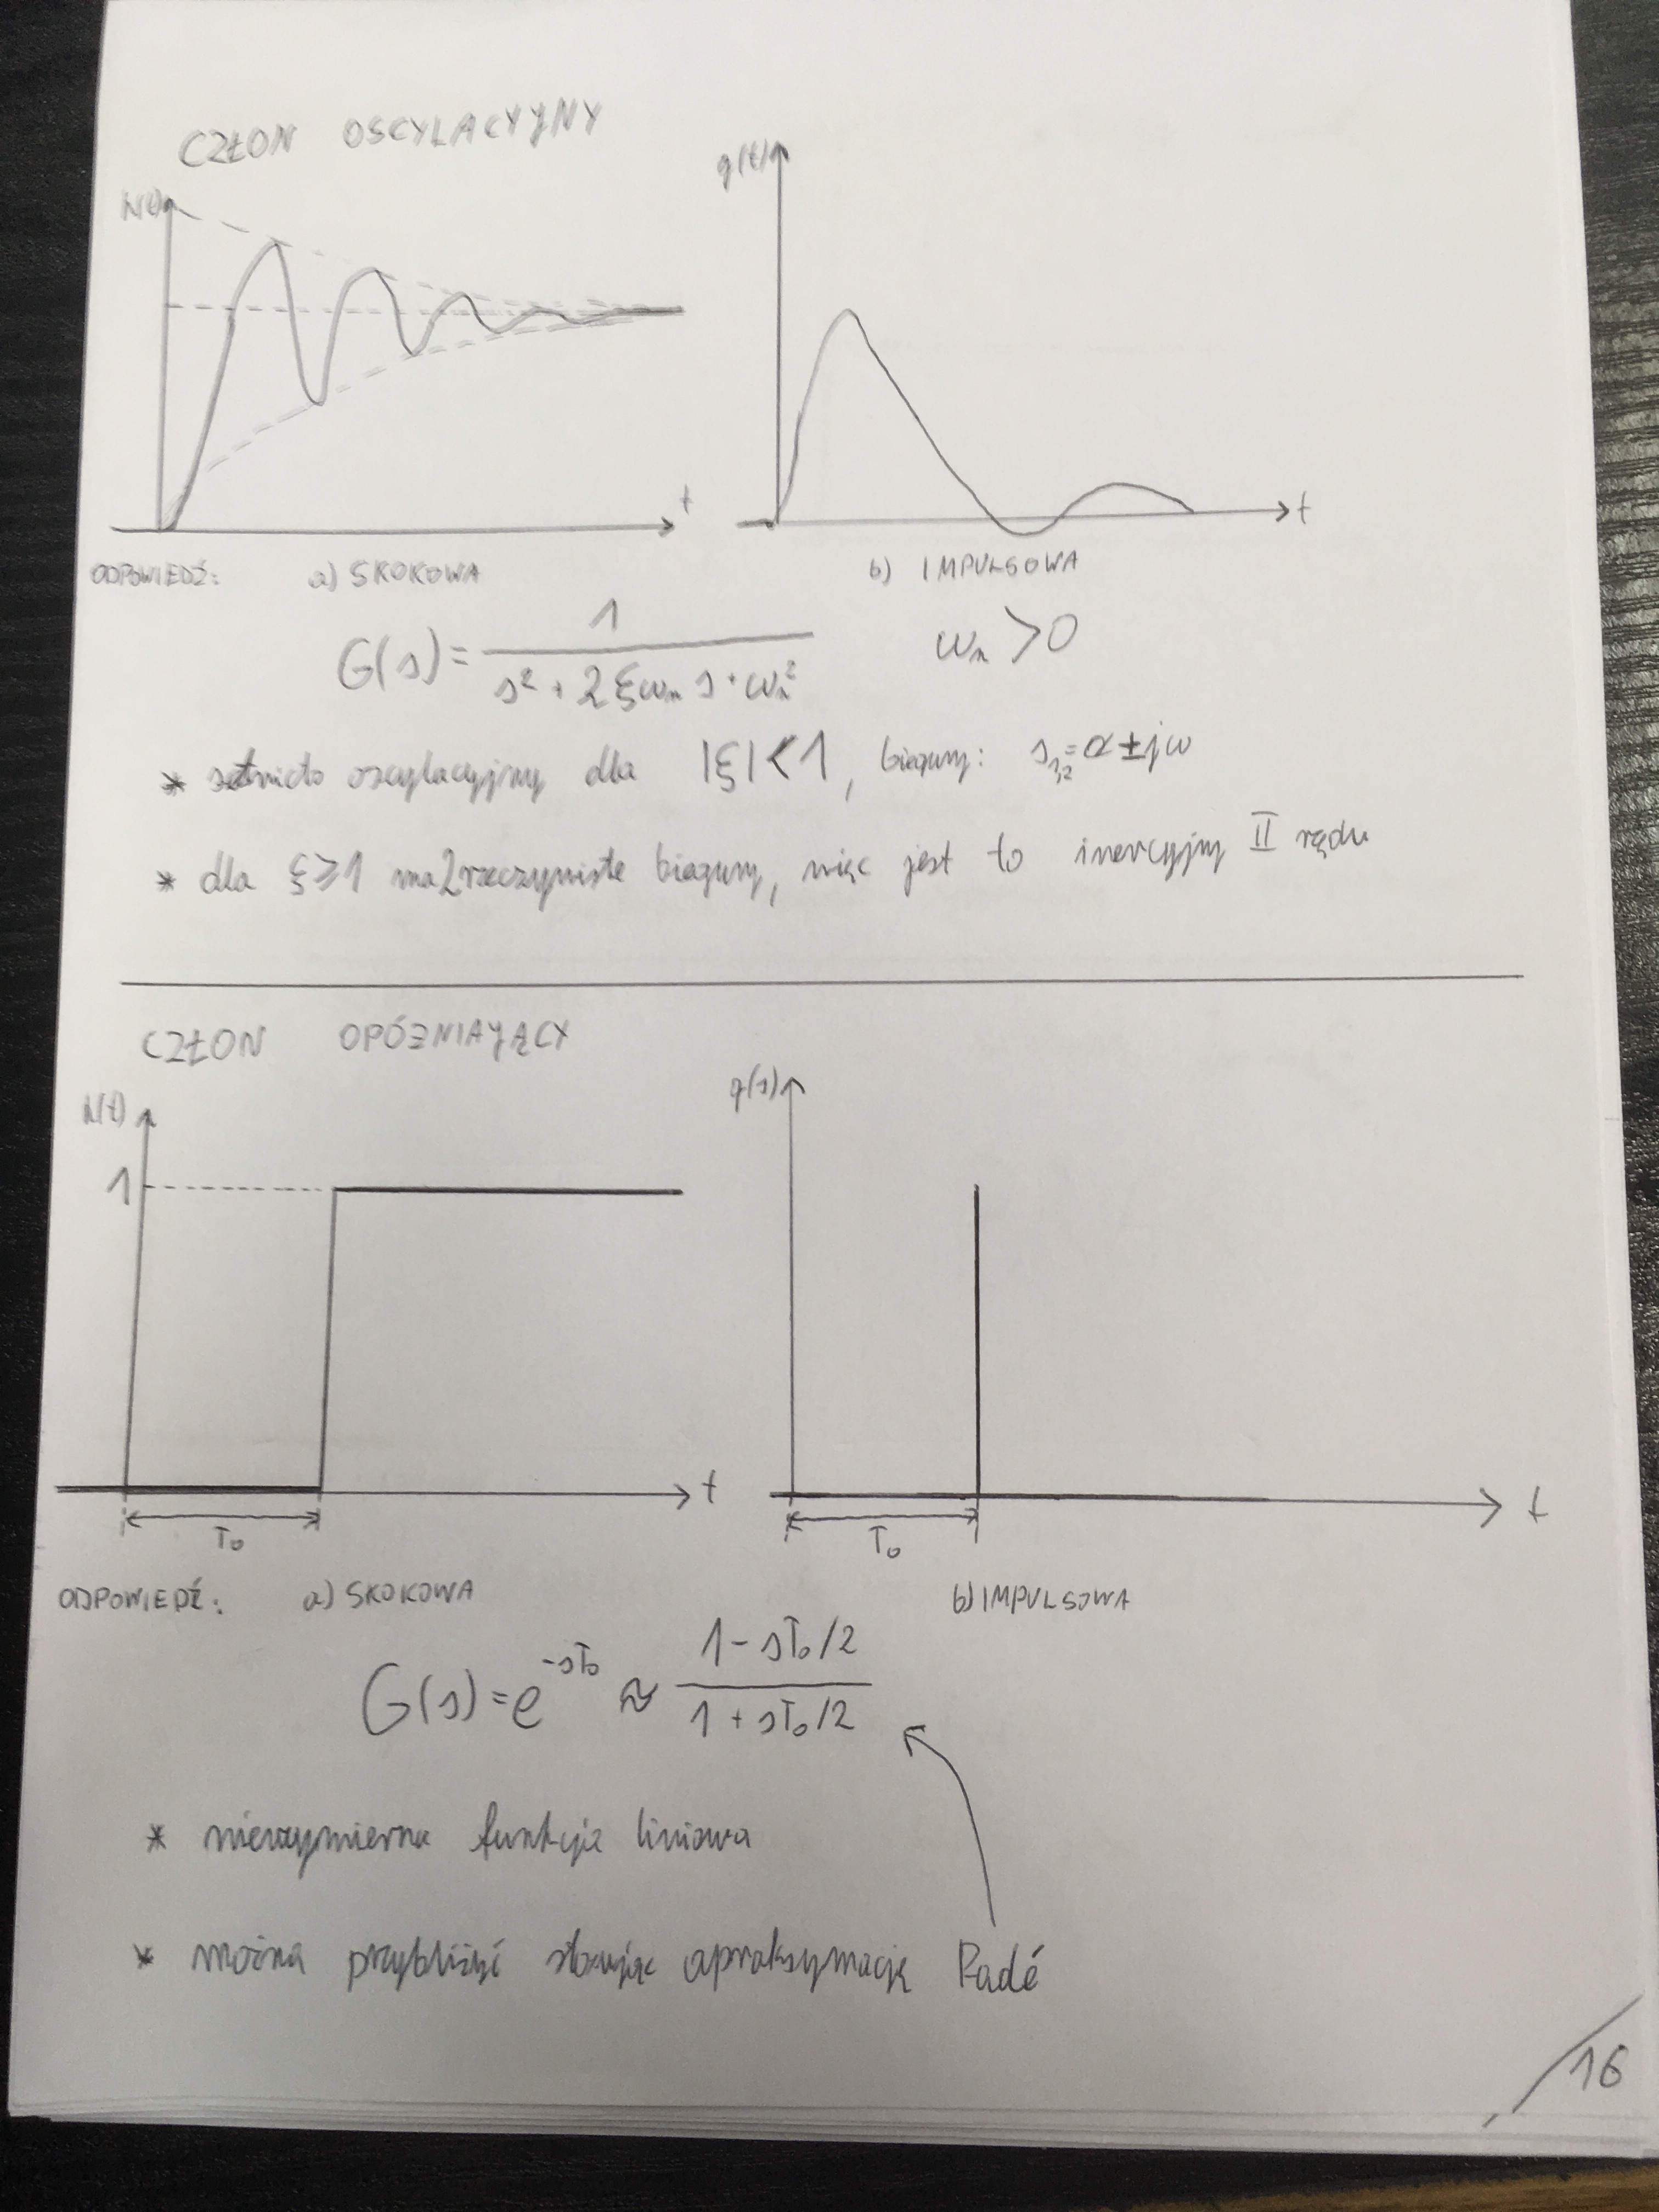 CZŁON OSCYLACYJNY
h(t)
g(t)
t
t
ODPOWIEDŹ: a) SKOKOWA b) IMPULSOWA
G(s) = 1 / (s² + 2ξωₙ s + ωₙ²) ωₙ > 0
* ściśle oscylacyjny dla |ξ| < 1, bieguny: s₁,₂ = α ± jω
* dla ξ ≥ 1 ma 2 rzeczywiste bieguny, więc jest to inercyjny II rzędu
CZŁON OPÓŹNIAJĄCY
h(t)
g(s)
1
t
t
T₀
T₀
ODPOWIEDŹ: a) SKOKOWA b) IMPULSOWA
G(s) = e^(-sT₀) ≈ (1 - sT₀/2) / (1 + sT₀/2)
* niewymierna funkcja liniowa
* można przybliżyć stosując aproksymację Padé
16